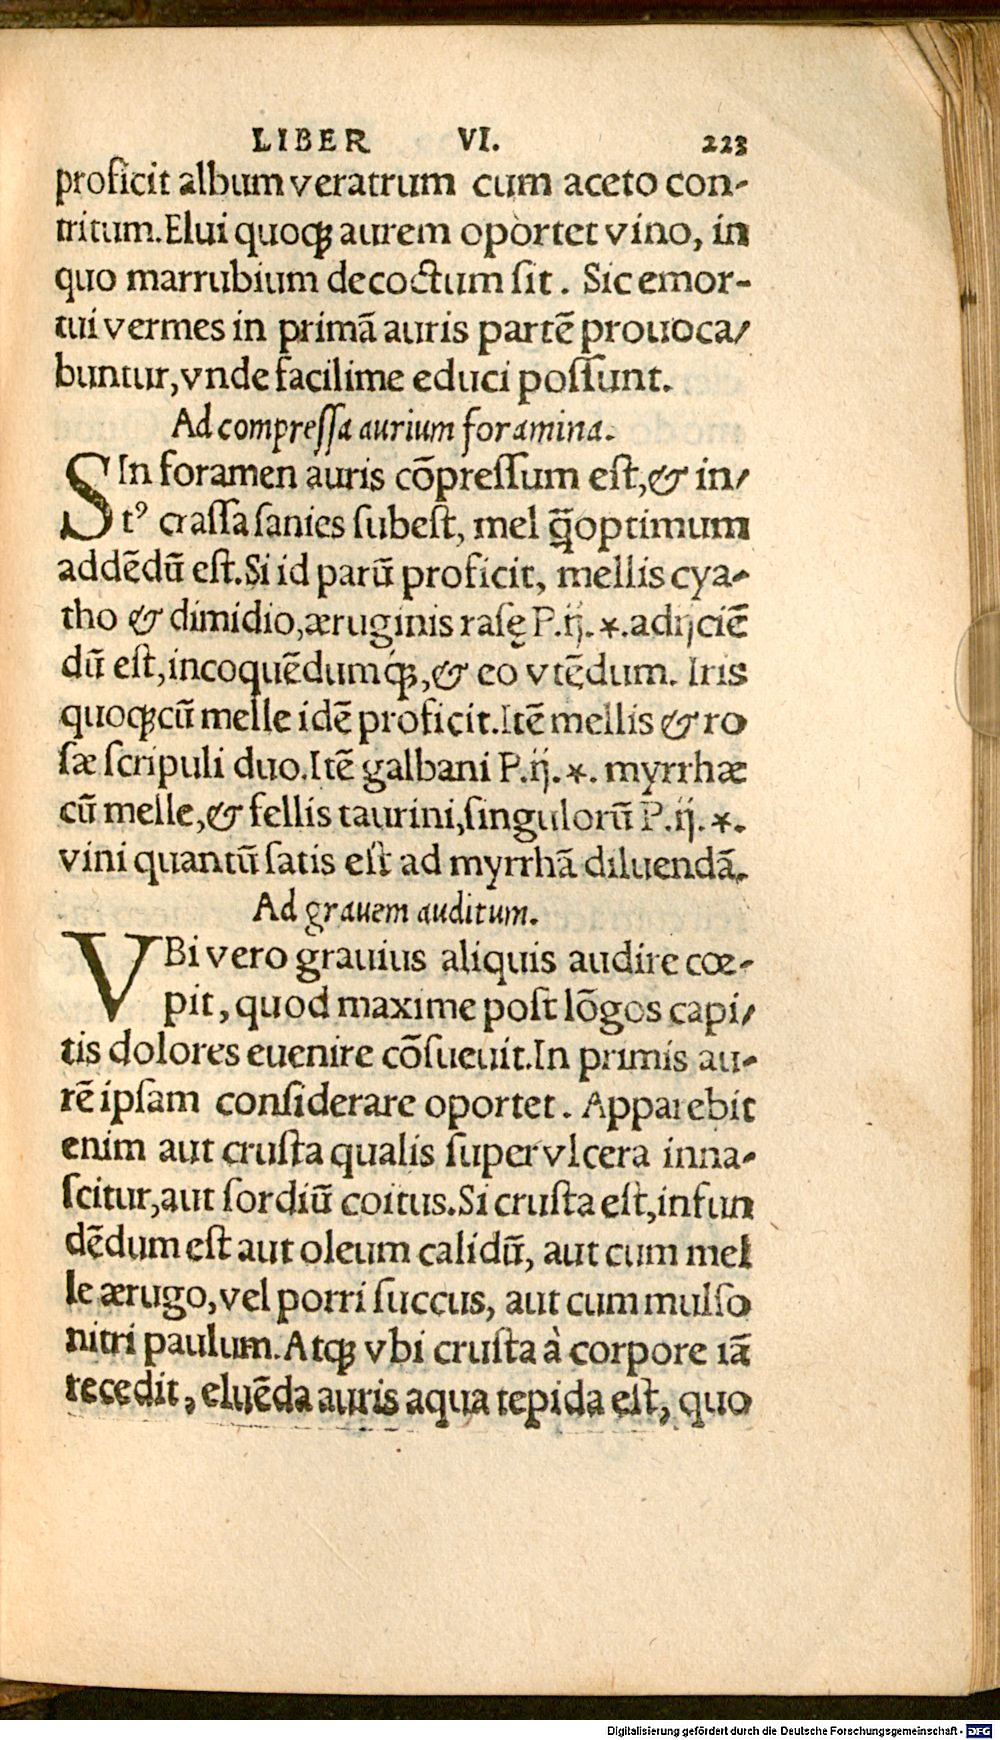 LIBER VI. 223
proficit album veratrum cum aceto con-
tritum. Elui quoqꝫ aurem oportet vino, in
quo marrubium decoctum ſit. Sic emor-
tui vermes in primã auris partẽ prouoca/
buntur, vnde facilime educi poſſunt.
Ad compreſſa aurium foramina.
SIn foramen auris cõpreſſum eſt, & in/
tꝰ craſſa ſanies ſubeſt, mel q̃optimum
addẽdũ eſt. Si id parũ proficit, mellis cya-
tho & dimidio, æruginis raſę P.ij.*. adijciẽ
dũ eſt, incoquẽdumqꝫ, & eo vtẽdum. Iris
quoqꝫ cũ melle idẽ proficit. Itẽ mellis & ro
ſæ ſcripuli duo. Itẽ galbani P.ij.*. myrrhæ
cũ melle, & fellis taurini, ſingulorũ P.ij.*.
vini quantũ ſatis eſt ad myrrhã diluendã.
Ad grauem auditum.
VBi vero grauius aliquis audire cœ-
pit, quod maxime poſt lõgos capi/
tis dolores euenire cõſueuit. In primis au-
rẽ ipſam conſiderare oportet. Apparebit
enim aut cruſta qualis ſuper vlcera inna-
ſcitur, aut ſordiũ coitus. Si cruſta eſt, infun
dẽdum eſt aut oleum calidũ, aut cum mel
le ærugo, vel porri ſuccus, aut cum mulſo
nitri paulum. Atqꝫ vbi cruſta à corpore iã
recedit, eluẽda auris aqua tepida eſt, quo
Digitalisierung gefördert durch die Deutsche Forschungsgemeinschaft - DFG